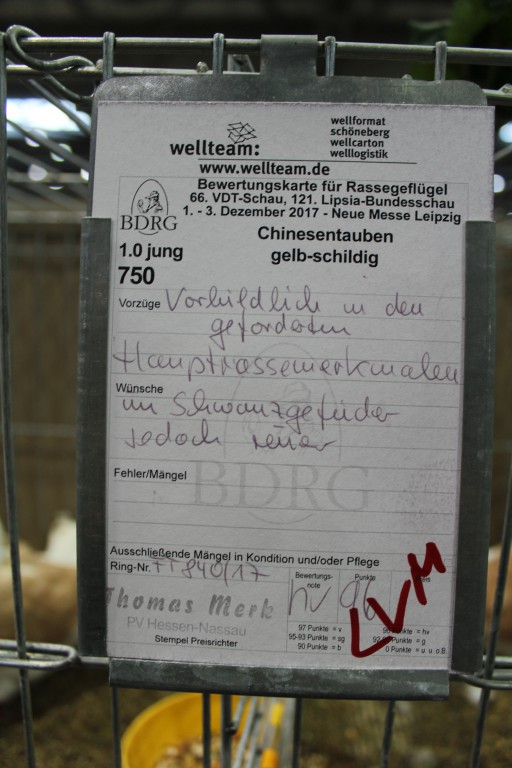 wellteam:
wellformat
schöneberg
wellcarton
welllogistik
www.wellteam.de
BDRG
Bewertungskarte für Rassegeflügel
66. VDT-Schau, 121. Lipsia-Bundesschau
1. - 3. Dezember 2017 - Neue Messe Leipzig
Chinesentauben
1.0 jung gelb-schildig
750
Vorzüge Vorbildlich in den
geforderten
Hauptrassemerkmalen
Wünsche
im Schwanzgefieder
jedoch reiner
Fehler/Mängel
BDRG
Ausschließende Mängel in Kondition und/oder Pflege
Ring-Nr. FT 840/17
Thomas Merk
PV Hessen-Nassau
Stempel Preisrichter
Bewertungs-
note
hv
Punkte
96
LVM
97 Punkte = v
95-93 Punkte = sg
90 Punkte = b
= hv
Punkte = g
0 Punkte = u. u o.B.